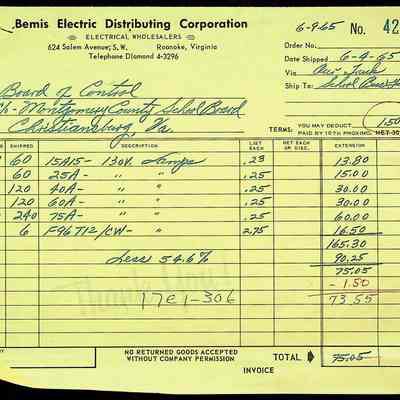 Bemis Electric Distributing Corporation
ELECTRICAL WHOLESALERS
624 Salem Avenue, S.W. Roanoke, Virginia
Telephone DIamond 4-3296
6-9-65 No. 42
Order No.
Date Shipped 6-4-65
Via Our Truck
Ship To: School Board
Board of Control
c/o Montgomery County School Board
Christiansburg, Va.
TERMS: YOU MAY DEDUCT 1.50
PAID BY 10TH PROXIMO. NET 30
SHIPPED DESCRIPTION LIST EACH NET EACH OR DISC. EXTENSION
60 15A15 - 130V. Lamps .23 13.80
60 25A - " " .25 15.00
120 40A - " " .25 30.00
120 60A - " " .25 30.00
240 75A - " " .25 60.00
6 F96T12/CW - " 2.75 16.50
165.30
Less 54.6% 90.25
75.05
- 1.50
17E1-306 73.55
Thank You!
NO RETURNED GOODS ACCEPTED
WITHOUT COMPANY PERMISSION
TOTAL 75.05
INVOICE